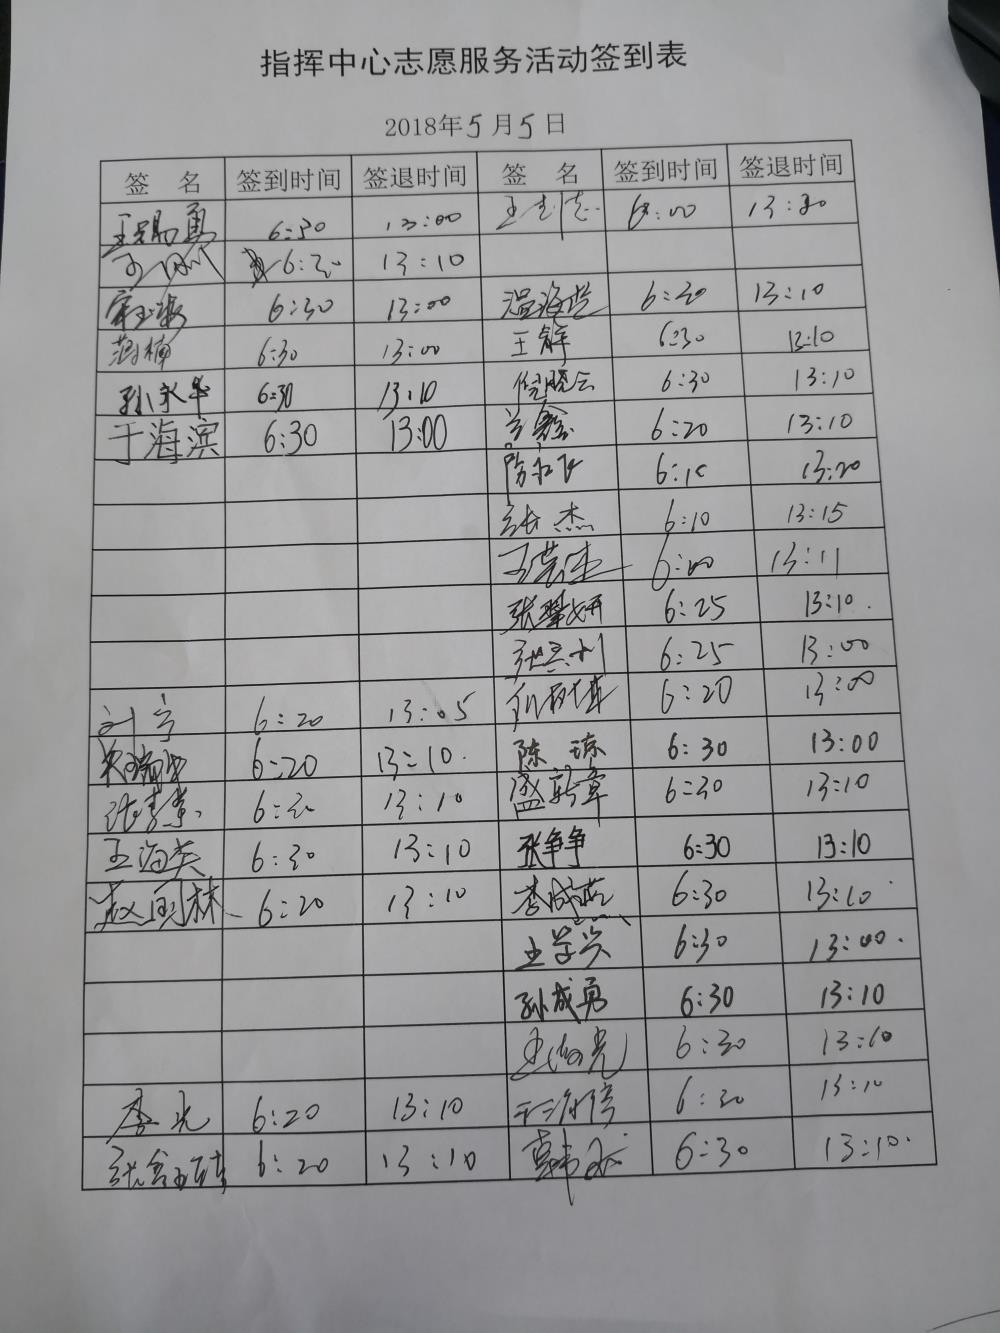 指挥中心志愿服务活动签到表
2018年5月5日
签 名 签到时间 签退时间 签 名 签到时间 签退时间
勇 6:30 13:00 王志 6:00 13:30
6:30 13:10
6:30 13:00 温海 6:30 13:10
楠 6:30 13:00 王 6:30 13:10
孙永华 6:30 13:10 倪晓云 6:30 13:10
于海滨 6:30 13:00 鑫 6:20 13:10
6:10 13:20
张杰 6:10 13:15
王 6:00 13:11
张翠妍 6:25 13:10.
张 6:25 13:00
6:20 13:00
刘宁 6:20 13:05
6:20 13:10. 陈琼 6:30 13:00
张 6:20 13:10 盛新章 6:30 13:10
王海英 6:20 13:10 张争争 6:30 13:10
赵 林 6:20 13:10 李 6:30 13:10
王学兴 6:30 13:00.
孙成勇 6:30 13:10
光 6:30 13:10
李光 6:20 13:10 6:30 13:10
张 6:20 13:10 韩 6:30 13:10.